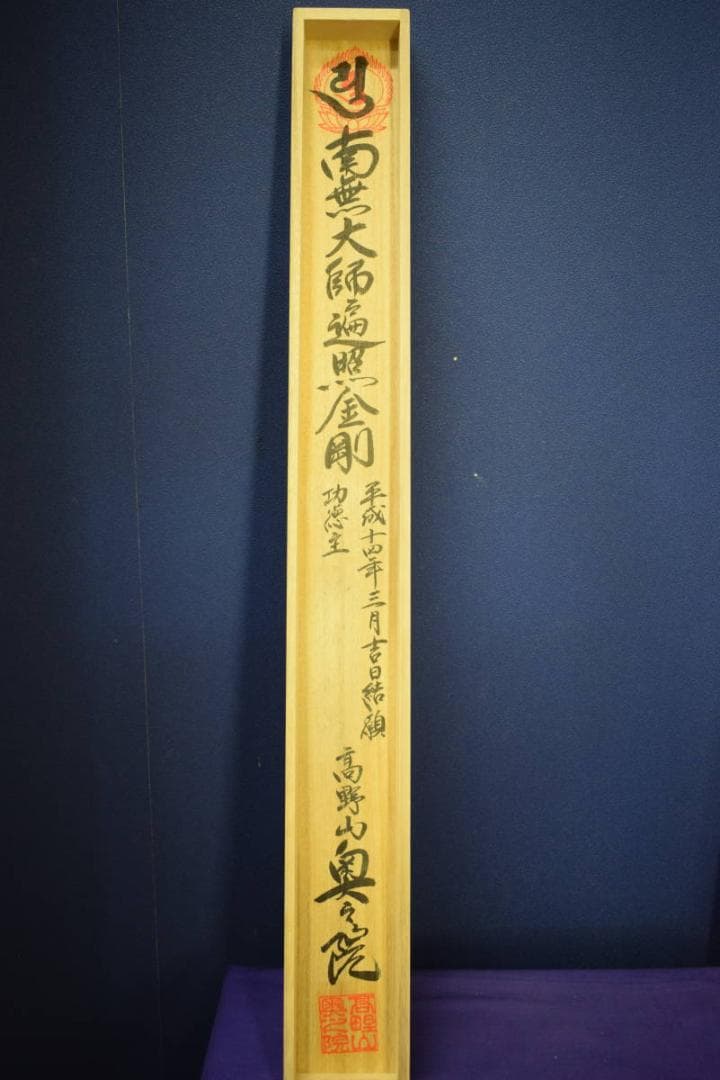 南無大師遍照金剛
平成十四年三月吉日結願
功徳主
高野山奥之院
高野山
奥之院